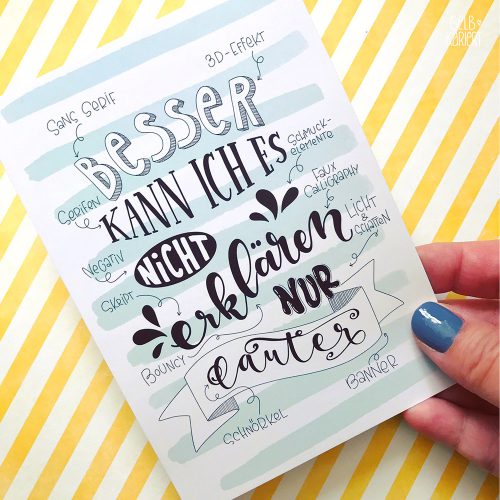 GELB KARIERT
3D-EFFEKT
SANS SERIF
BESSER
SCHMUCK-
ELEMENTE
SERIFEN
KANN ICH ES
FAUX
CALLIGRAPHY
NEGATIV
NICHT
LICHT
&
SCHATTEN
SKRIPT
erklären
NUR
BOUNCY
lauter
BANNER
SCHNÖRKEL